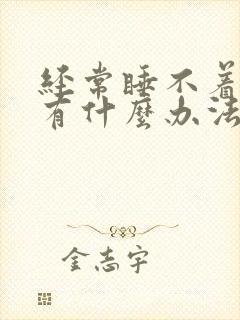 经常睡不着
有什麼办法
金志宇